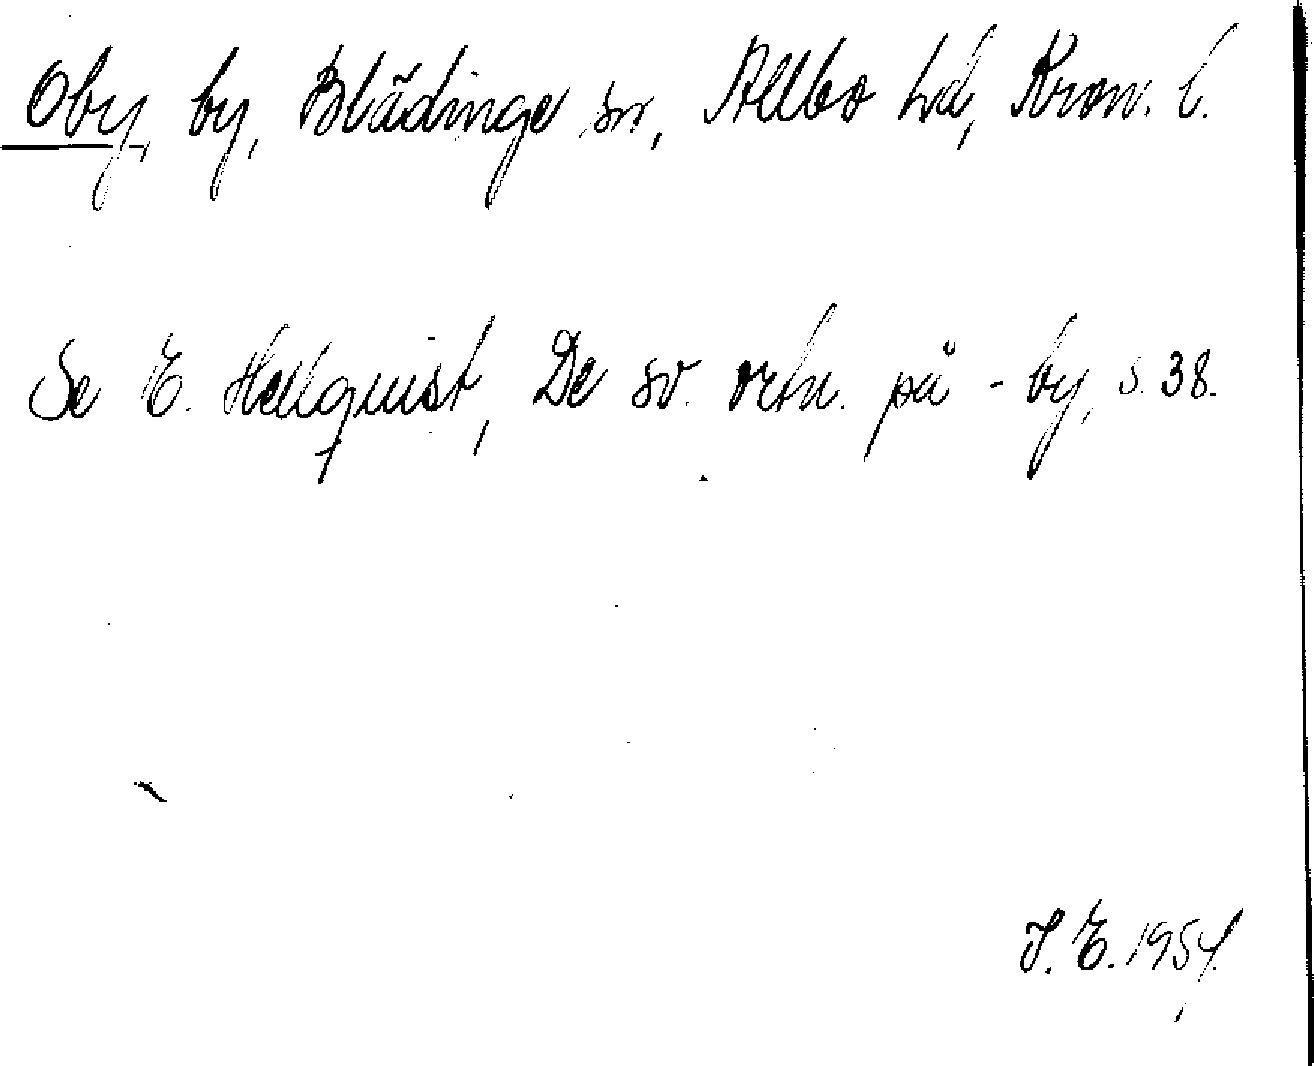 Oby, by, Blädinge sn, Allbo hd, Kron. l.
Se E. Hellquist, De sv. ortn. på -by, s. 38.
J. E. 1954.